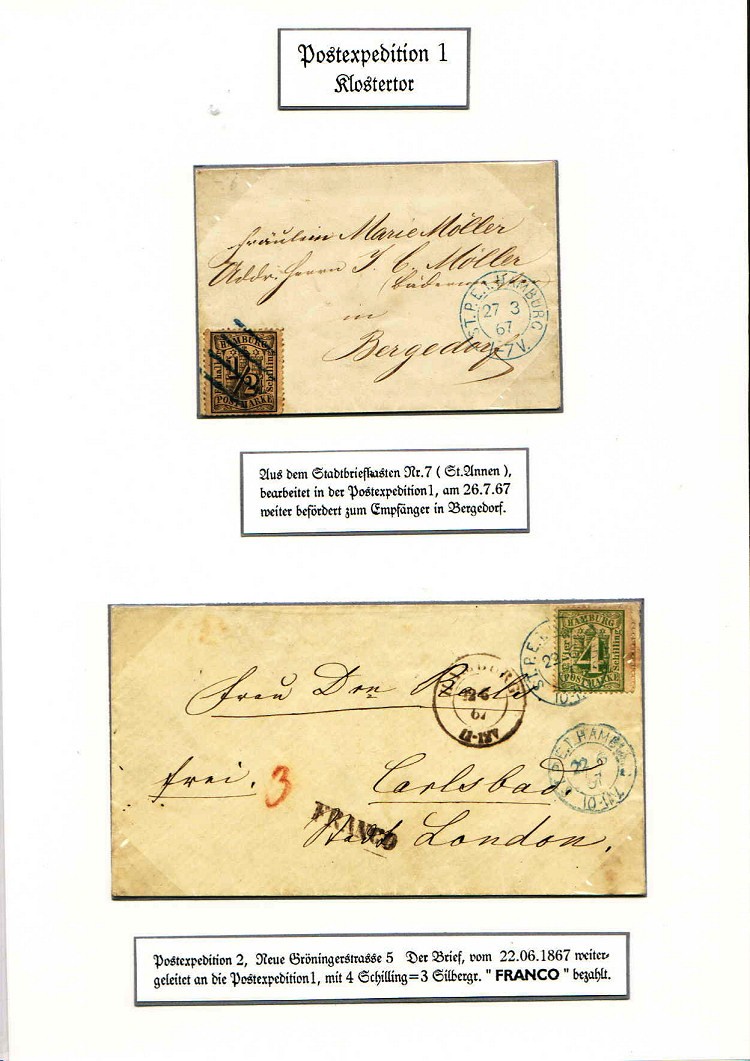 Postexpedition 1
Klostertor
Fräulein Marie Möller
Addr. Herrn J. C. Möller
in
Bergedorf
ST.P.E.1.HAMBURG
27 3
67
HAMBURG
1/2
Schilling
POSTMARKE
Aus dem Stadtbriefkasten Nr.7 ( St.Annen ),
bearbeitet in der Postexpedition1, am 26.7.67
weiter befördert zum Empfänger in Bergedorf.
HAMBURG
Vier
4
Schilling
POSTMARKE
ST.P.E.
22
67
11-12V
Frau Don
frei.
3
Carlsbad.
HAMBU
22 6
67
FRANCO
Stadt London.
Postexpedition 2, Neue Gröningerstrasse 5 Der Brief, vom 22.06.1867 weiter-
geleitet an die Postexpedition1, mit 4 Schilling=3 Silbergr. " FRANCO " bezahlt.